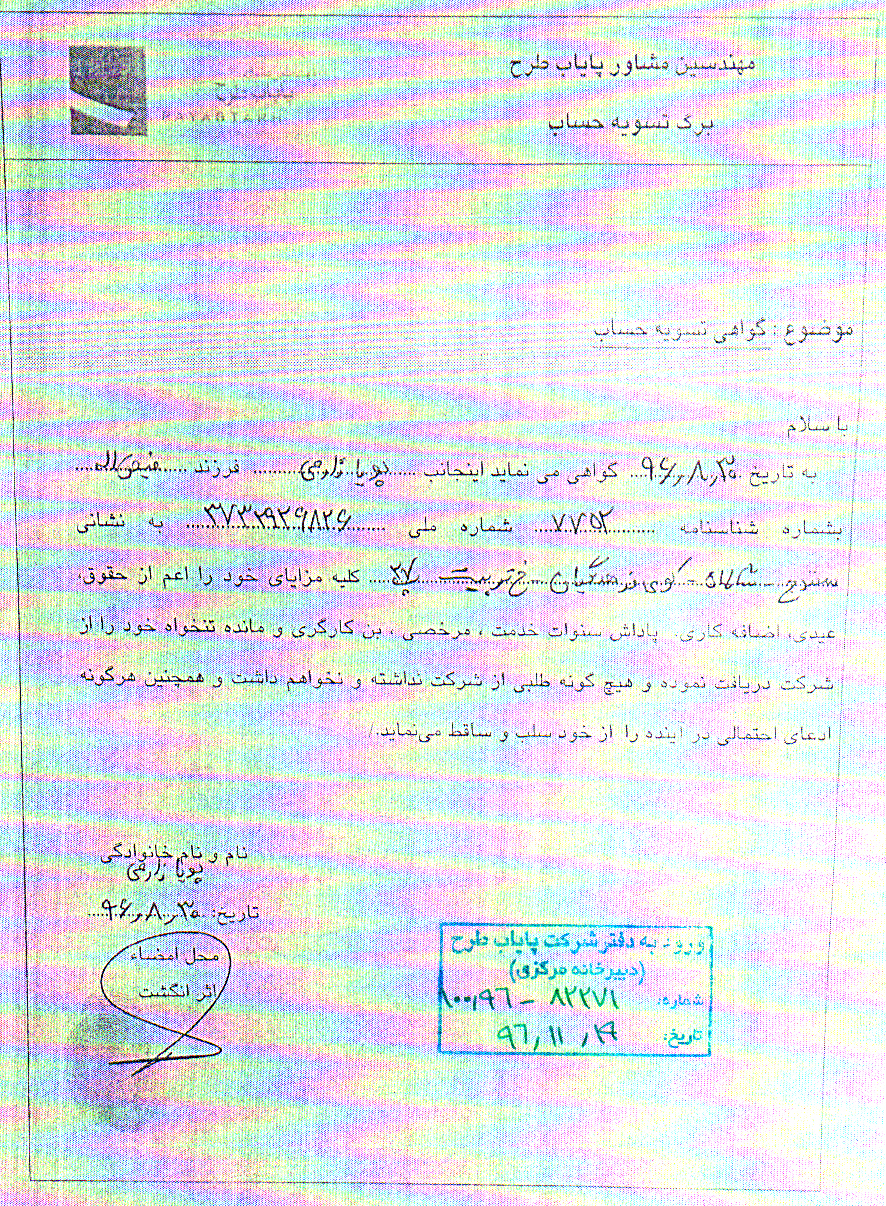 مهندسین مشاور پایاب طرح
پایاب طرح
برگ تسویه حساب
موضوع : گواهی تسویه حساب
با سلام
به تاریخ ۹۶٫۸٫۳۰ گواهی می نماید اینجانب پویا زارعی فرزند فیض اله
بشماره شناسنامه ۷۷۵۲ شماره ملی ۳۷۳۲۹۲۹۸۲۶ به نشانی
سنندج - شالمان - کوی فرهنگیان - خ تربیت پ ۳۷ کلیه مزایای خود را اعم از حقوق،
عیدی، اضافه کاری، پاداش سنوات خدمت ، مرخصی ، بن کارگری و مانده تنخواه خود را از
شرکت دریافت نموده و هیچ گونه طلبی از شرکت نداشته و نخواهم داشت و همچنین هرگونه
ادعای احتمالی در آینده را از خود سلب و ساقط می‌نماید./
نام و نام خانوادگی
پویا زارعی
تاریخ: ۹۶٫۸٫۳۰
محل امضاء
اثر انگشت
ورود به دفتر شرکت پایاب طرح
(دبیرخانه مرکزی)
شماره: ۱۰۰٫۹۶ - ۸۲۲۷۱
تاریخ: ۹۶٫۱۱٫۱۹